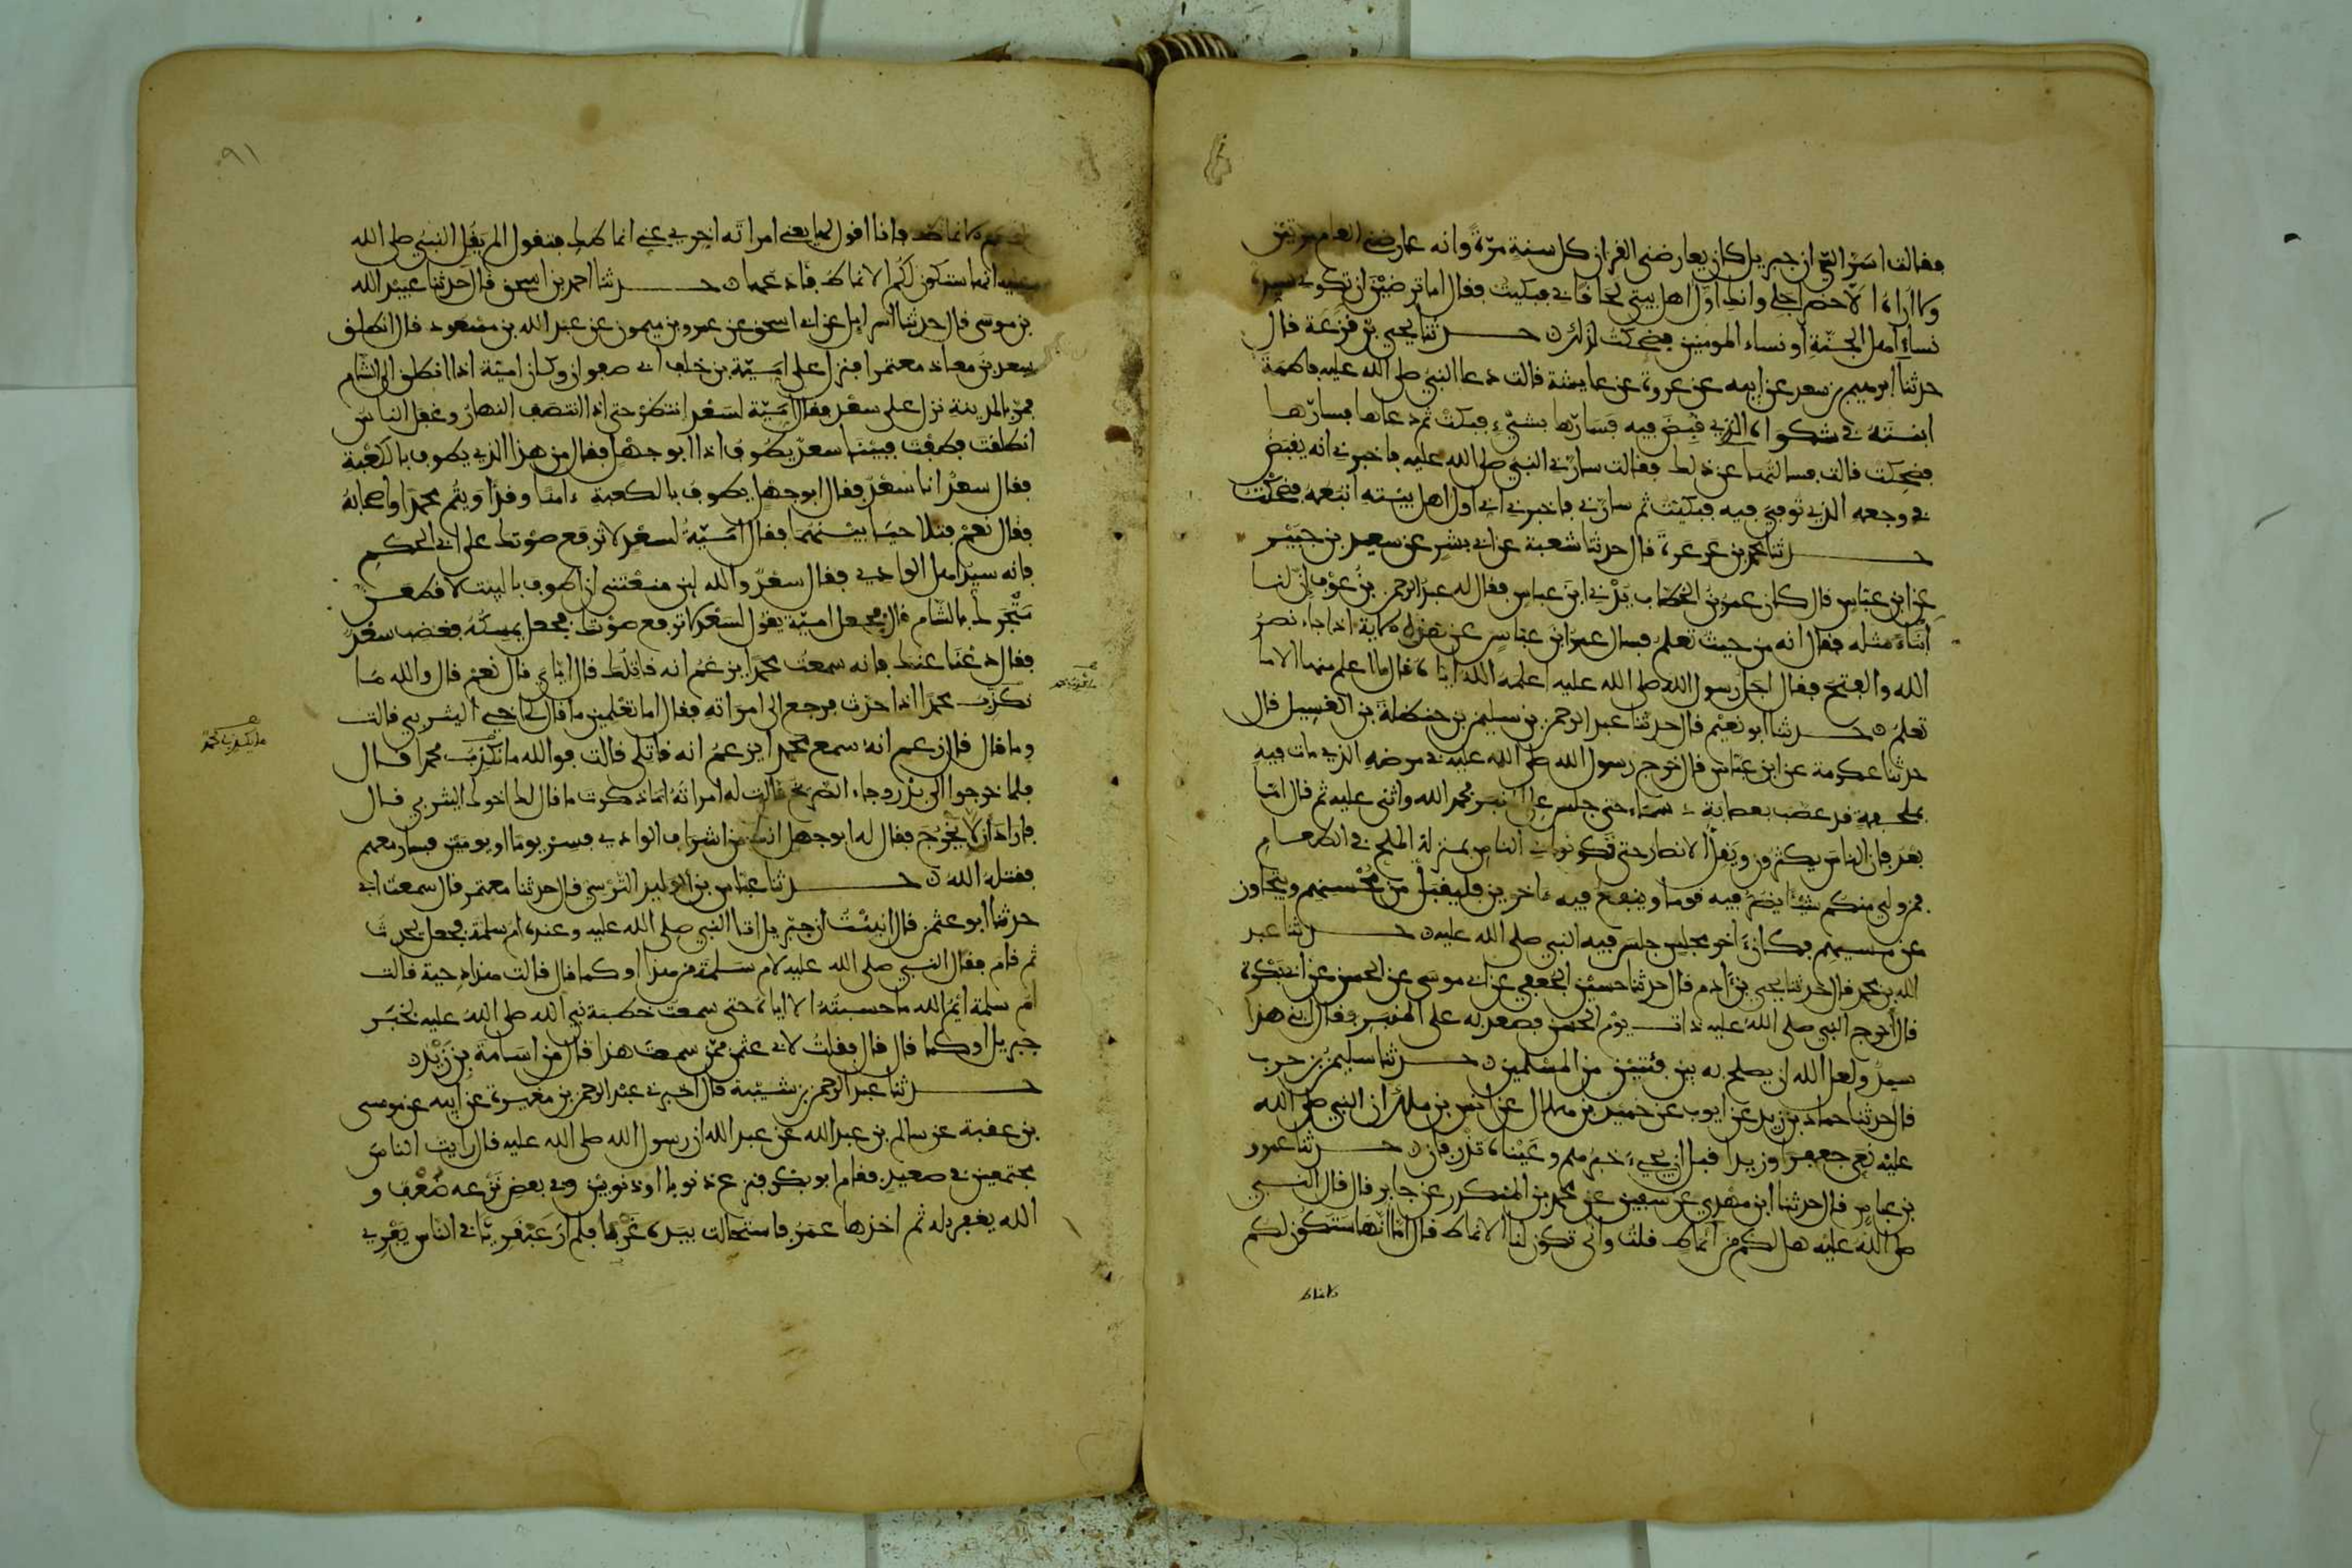 فقالت اسر الي ان جبريل كان يعارضني القرءان كل سنة مرة وانه عارضني العام مرتين
ولا اراه الا حضر اجلي وانك اول اهل بيتي لحاقا بي فبكيت فقال اما ترضين ان تكوني سيدة
نساء اهل الجنة او نساء المومنين فضحكت لذلك ه حدثنا يحيى بن قزعة قال
حدثنا ابرهيم بن سعد عن ابيه عن عروة عن عايشة قالت دعا النبي صلى الله عليه فاطمة
ابنته في شكواه الذي قبض فيه فسارها بشيء فبكت ثم دعاها فسارها
فضحكت قالت فسالتها عن ذلك فقالت سارني النبي صلى الله عليه فاخبرني انه يقبض
في وجعه الذي توفي فيه فبكيت ثم سارني فاخبرني اني اول اهل بيته اتبعه فضحكت
حدثنا محمد بن عرعرة قال حدثنا شعبة عن ابي بشر عن سعيد بن جبير
عن ابن عباس قال كان عمر بن الخطاب يدني ابن عباس فقال له عبد الرحمن بن عوف ان لنا
ابناء مثله فقال انه من حيث تعلم فسال عمر ابن عباس عن هذه الاية اذا جاء نصر
الله والفتح فقال اجل رسول الله صلى الله عليه اعلمه الله اياه قال ما اعلم منها الا ما
تعلم ه حدثنا ابو نعيم قال حدثنا عبد الرحمن بن سليمن بن حنظلة بن الغسيل قال
حدثنا عكرمة عن ابن عباس قال خرج رسول الله صلى الله عليه في مرضه الذي مات فيه
بملحفة قد عصب بعصابة دسماء حتى جلس على المنبر فحمد الله واثنى عليه ثم قال اما
بعد فان الناس يكثرون ويقل الانصار حتى يكونوا في الناس بمنزلة الملح في الطعام
فمن ولي منكم شيئا يضر فيه قوما وينفع فيه ءاخرين فليقبل من محسنهم ويتجاوز
عن مسيئهم فكان ءاخر مجلس جلس فيه النبي صلى الله عليه ه حدثنا عبد
الله بن محمد قال حدثنا يحيى بن ءادم قال حدثنا حسين الجعفي عن ابي موسى عن الحسن عن ابي بكرة
قال اخرج النبي صلى الله عليه ذات يوم الحسن فصعد به على المنبر فقال ابني هذا
سيد ولعل الله ان يصلح به بين فئتين من المسلمين ه حدثنا سليمن بن حرب
قال حدثنا حماد بن زيد عن ايوب عن حميد بن هلال عن انس بن ملك ان النبي صلى الله
عليه نعى جعفرا وزيدا قبل ان يجيء خبرهم وعيناه تذرفان ه حدثنا عمرو
بن عباس قال حدثنا ابن مهدي عن سفين عن محمد بن المنكدر عن جابر قال قال النبي
صلى الله عليه هل لكم من انماط قلت وانى تكون لنا الانماط قال اما انها ستكون لكم
الانماط
٩١
الانماط فانا اقول لها يعني امراته اخري عني انماطك فتقول الم يقل النبي صلى الله
عليه انها ستكون لكم الانماط فادعها ه حدثنا احمد بن اسحق قال حدثنا عبيد الله
بن موسى قال حدثنا اسراييل عن ابي اسحق عن عمرو بن ميمون عن عبد الله بن مسعود قال انطلق
سعد بن معاذ معتمرا فنزل على امية بن خلف ابي صفوان وكان امية اذا انطلق الى الشام
فمر بالمدينة نزل على سعد فقال امية لسعد انتظر حتى اذا انتصف النهار وغفل الناس
انطلقت فطفت فبينا سعد يطوف اذا ابو جهل فقال من هذا الذي يطوف بالكعبة
فقال سعد انا سعد فقال ابو جهل يطوف بالكعبة ءامنا وقد اويتم محمدا واصحابه
فقال نعم فتلاحيا بينهما فقال امية لسعد لا ترفع صوتك على ابي الحكم
فانه سيد اهل الوادي فقال سعد والله لين منعتني ان اطوف بالبيت لاقطعن
متجرك بالشام قال فجعل امية يقول لسعد لا ترفع صوتك فجعل يمسكه فغضب سعد
فقال دعنا عنك فانه سمعت محمدا يزعم انه قاتلك قال اياي قال نعم قال والله ما
نكذب محمدا اذا حدث فرجع الى امراته فقال اما تعلمين ما قال لي اخي اليثربي قالت
وما قال قال زعم انه سمع محمدا يزعم انه قاتلي قالت فوالله ما نكذب محمدا قال
فلما خرجوا الى بدر وجاء الصريخ قالت له امراته اما ذكرت ما قال لك اخوك اليثربي قال
فاراد ان لا يخرج فقال له ابو جهل انك من اشراف الوادي فسر يوما او يومين فسار معهم
فقتله الله ه حدثنا عباس بن الوليد النرسي قال حدثنا معتمر قال سمعت ابي
حدثنا ابو عثمن قال انبئت ان جبريل اتا النبي صلى الله عليه وعنده ام سلمة فجعل يحدث
ثم قام فقال النبي صلى الله عليه لام سلمة من هذا او كما قال قالت هذا دحية قالت
ام سلمة ايم الله ما حسبته الا اياه حتى سمعت خطبة نبي الله صلى الله عليه بخبر
جبريل او كما قال قال فقلت لابي عثمن ممن سمعت هذا قال من اسامة بن زيد ه
حدثنا عبد الرحمن بن شيبة قال اخبرني عبد الرحمن بن مغيرة عن ابيه عن موسى
بن عقبة عن سالم بن عبد الله عن عبد الله ان رسول الله صلى الله عليه قال رايت الناس
مجتمعين في صعيد فقام ابو بكر فنزع ذنوبا او ذنوبين وفي بعض نزعه ضعف و
الله يغفر له ثم اخذها عمر فاستحالت بيده غربا فلم ار عبقريا في الناس يفري